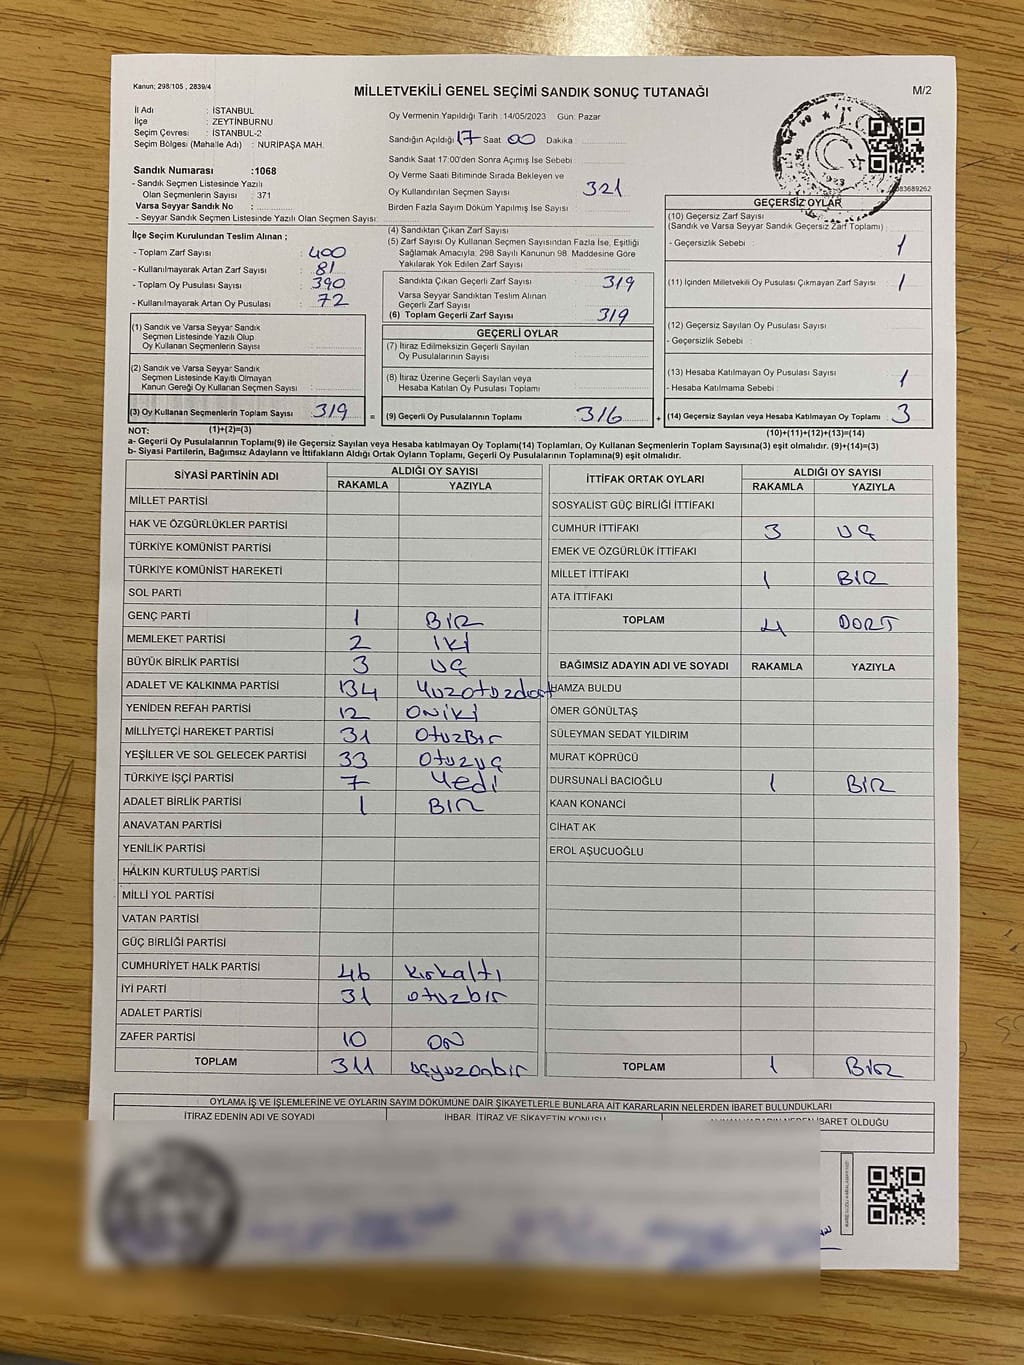 Kanun; 298/105 , 2839/4
MİLLETVEKİLİ GENEL SEÇİMİ SANDIK SONUÇ TUTANAĞI
M/2
İl Adı : İSTANBUL
İlçe : ZEYTİNBURNU
Seçim Çevresi : İSTANBUL-2
Seçim Bölgesi (Mahalle Adı) : NURİPAŞA MAH.
Sandık Numarası :1068
- Sandık Seçmen Listesinde Yazılı
Olan Seçmenlerin Sayısı : 371
Varsa Seyyar Sandık No :
- Seyyar Sandık Seçmen Listesinde Yazılı Olan Seçmen Sayısı:
Oy Vermenin Yapıldığı Tarih : 14/05/2023 Gün: Pazar
Sandığın Açıldığı 17 Saat 00 Dakika
Sandık Saat 17:00'den Sonra Açımış İse Sebebi :
Oy Verme Saati Bitiminde Sırada Bekleyen ve
Oy Kullandırılan Seçmen Sayısı : 321
Birden Fazla Sayım Döküm Yapılmış İse Sayısı :
İlçe Seçim Kurulundan Teslim Alınan ;
- Toplam Zarf Sayısı : 400
- Kullanılmayarak Artan Zarf Sayısı : 81
- Toplam Oy Pusulası Sayısı : 390
- Kullanılmayarak Artan Oy Pusulası : 72
(1) Sandık ve Varsa Seyyar Sandık
Seçmen Listesinde Yazılı Olup
Oy Kullanan Seçmenlerin Sayısı :
(2) Sandık ve Varsa Seyyar Sandık
Seçmen Listesinde Kayıtlı Olmayan
Kanun Gereği Oy Kullanan Seçmen Sayısı :
(3) Oy Kullanan Seçmenlerin Toplam Sayısı : 319 =
(4) Sandıktan Çıkan Zarf Sayısı :
(5) Zarf Sayısı Oy Kullanan Seçmen Sayısından Fazla İse, Eşitliği
Sağlamak Amacıyla; 298 Sayılı Kanunun 98. Maddesine Göre
Yakılarak Yok Edilen Zarf Sayısı :
Sandıkta Çıkan Geçerli Zarf Sayısı : 319
Varsa Seyyar Sandıktan Teslim Alınan
Geçerli Zarf Sayısı :
(6) Toplam Geçerli Zarf Sayısı : 319
GEÇERLİ OYLAR
(7) İtiraz Edilmeksizin Geçerli Sayılan
Oy Pusulalarının Sayısı :
(8) İtiraz Üzerine Geçerli Sayılan veya
Hesaba Katılan Oy Pusulası Toplamı :
(9) Geçerli Oy Pusulalarının Toplamı : 316 +
GEÇERSİZ OYLAR
(10) Geçersiz Zarf Sayısı
(Sandık ve Varsa Seyyar Sandık Geçersiz Zarf Toplamı) :
- Geçersizlik Sebebi : 1
(11) İçinden Milletvekili Oy Pusulası Çıkmayan Zarf Sayısı : 1
(12) Geçersiz Sayılan Oy Pusulası Sayısı :
- Geçersizlik Sebebi :
(13) Hesaba Katılmayan Oy Pusulası Sayısı : 1
- Hesaba Katılmama Sebebi :
(14) Geçersiz Sayılan veya Hesaba Katılmayan Oy Toplamı : 3
NOT: (1)+(2)=(3) (10)+(11)+(12)+(13)=(14)
a- Geçerli Oy Pusulalarının Toplamı(9) ile Geçersiz Sayılan veya Hesaba katılmayan Oy Toplamı(14) Toplamları, Oy Kullanan Seçmenlerin Toplam Sayısına(3) eşit olmalıdır. (9)+(14)=(3)
b- Siyasi Partilerin, Bağımsız Adayların ve İttifakların Aldığı Ortak Oyların Toplamı, Geçerli Oy Pusulalarının Toplamına(9) eşit olmalıdır.
SİYASİ PARTİNİN ADI ALDIĞI OY SAYISI
RAKAMLA YAZIYLA
MİLLET PARTİSİ
HAK VE ÖZGÜRLÜKLER PARTİSİ
TÜRKİYE KOMÜNİST PARTİSİ
TÜRKİYE KOMÜNİST HAREKETİ
SOL PARTİ
GENÇ PARTİ 1 BİR
MEMLEKET PARTİSİ 2 İKİ
BÜYÜK BİRLİK PARTİSİ 3 UÇ
ADALET VE KALKINMA PARTİSİ 134 Yuzotuzdort
YENİDEN REFAH PARTİSİ 12 ONİKİ
MİLLİYETÇİ HAREKET PARTİSİ 31 OtuzBir
YEŞİLLER VE SOL GELECEK PARTİSİ 33 Otuzuç
TÜRKİYE İŞÇİ PARTİSİ 7 Yedi
ADALET BİRLİK PARTİSİ 1 BİR
ANAVATAN PARTİSİ
YENİLİK PARTİSİ
HALKIN KURTULUŞ PARTİSİ
MİLLİ YOL PARTİSİ
VATAN PARTİSİ
GÜÇ BİRLİĞİ PARTİSİ
CUMHURİYET HALK PARTİSİ 46 kırkaltı
İYİ PARTİ 31 otuzbir
ADALET PARTİSİ
ZAFER PARTİSİ 10 ON
TOPLAM 311 üçyuzonbir
İTTİFAK ORTAK OYLARI ALDIĞI OY SAYISI
RAKAMLA YAZIYLA
SOSYALİST GÜÇ BİRLİĞİ İTTİFAKI
CUMHUR İTTİFAKI 3 UÇ
EMEK VE ÖZGÜRLÜK İTTİFAKI
MİLLET İTTİFAKI 1 BİR
ATA İTTİFAKI
TOPLAM 4 DORT
BAĞIMSIZ ADAYIN ADI VE SOYADI RAKAMLA YAZIYLA
HAMZA BULDU
ÖMER GÖNÜLTAŞ
SÜLEYMAN SEDAT YILDIRIM
MURAT KÖPRÜCÜ
DURSUNALİ BACIOĞLU 1 BİR
KAAN KONANCİ
CİHAT AK
EROL AŞUCUOĞLU
TOPLAM 1 Bir
OYLAMA İŞ VE İŞLEMLERİNE VE OYLARIN SAYIM DÖKÜMÜNE DAİR ŞİKAYETLERLE BUNLARA AİT KARARLARIN NELERDEN İBARET BULUNDUKLARI
İTİRAZ EDENİN ADI VE SOYADI İHBAR, İTİRAZ VE ŞİKAYETİN KONUSU İBARET OLDUĞU